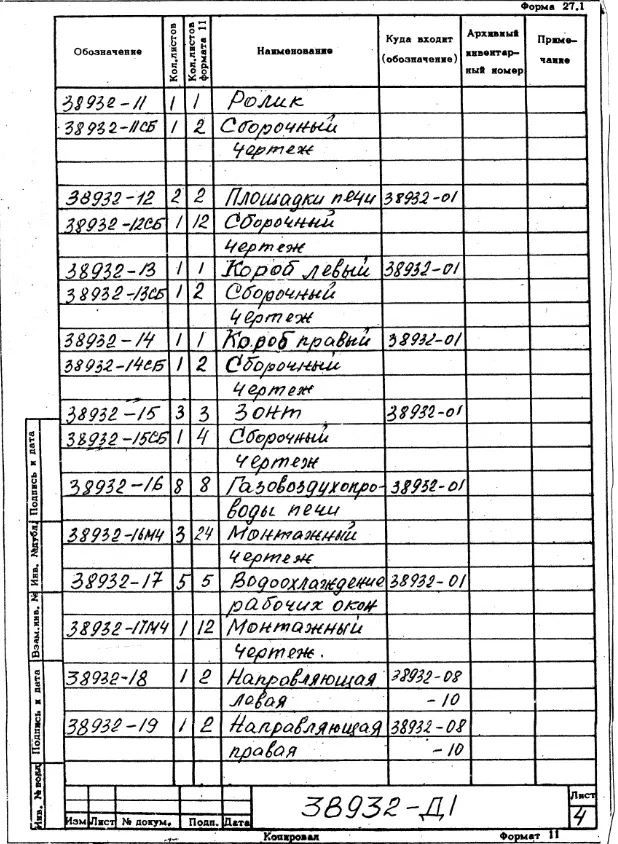 Форма 27.1
Обозначение Кол.листов Кол.листов формата 11 Наименование Куда входит (обозначение) Архивный инвентар- ный номер Приме- чание
38932-11 1 1 Ролик
38932-11СБ 1 2 Сборочный
чертеж
38932-12 2 2 Площадки печи 38932-01
38932-12СБ 1 12 Сборочный
чертеж
38932-13 1 1 Короб левый 38932-01
38932-13СБ 1 2 Сборочный
чертеж
38932-14 1 1 Короб правый 38932-01
38932-14СБ 1 2 Сборочный
чертеж
38932-15 3 3 Зонт 38932-01
38932-15СБ 1 4 Сборочный
чертеж
38932-16 8 8 Газовоздухопро- 38932-01
воды печи
38932-16МЧ 3 24 Монтажный
чертеж
38932-17 5 5 Водоохлаждение 38932-01
рабочих окон
38932-17МЧ 1 12 Монтажный
чертеж.
38932-18 1 2 Направляющая 38932-08
левая -10
38932-19 1 2 Направляющая 38932-08
правая -10
Подпись и дата
Инв. №дубл.
Взам.инв. №
Подпись и дата
Инв. №подл
38932-Д1
Лист
4
Изм Лист № докум. Подп. Дата
Копировал Формат 11